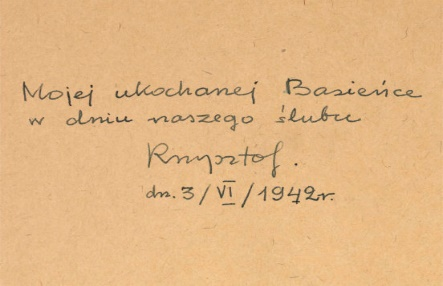 Mojej ukochanej Basieńce
w dniu naszego ślubu
Krzysztof.
dn. 3/VI/1942r.